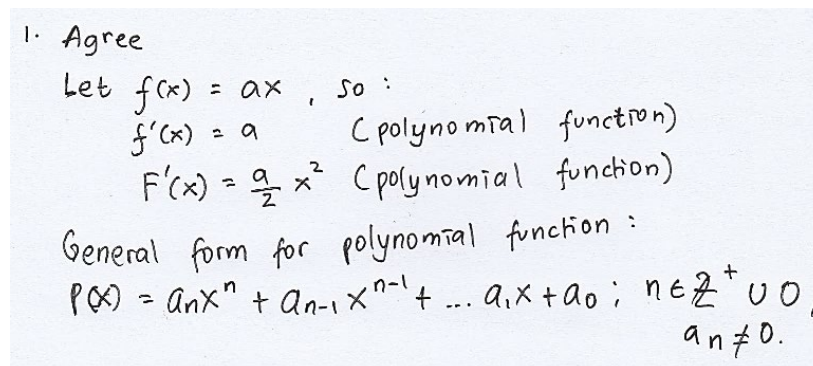 1. Agree
Let f(x) = ax , so :
f'(x) = a (polynomial function)
F'(x) = a/2 x² (polynomial function)
General form for polynomial function :
P(x) = aₙxⁿ + aₙ₋₁xⁿ⁻¹ + ... a₁x + a₀ ; n ∈ ℤ⁺ ∪ 0,
aₙ ≠ 0.